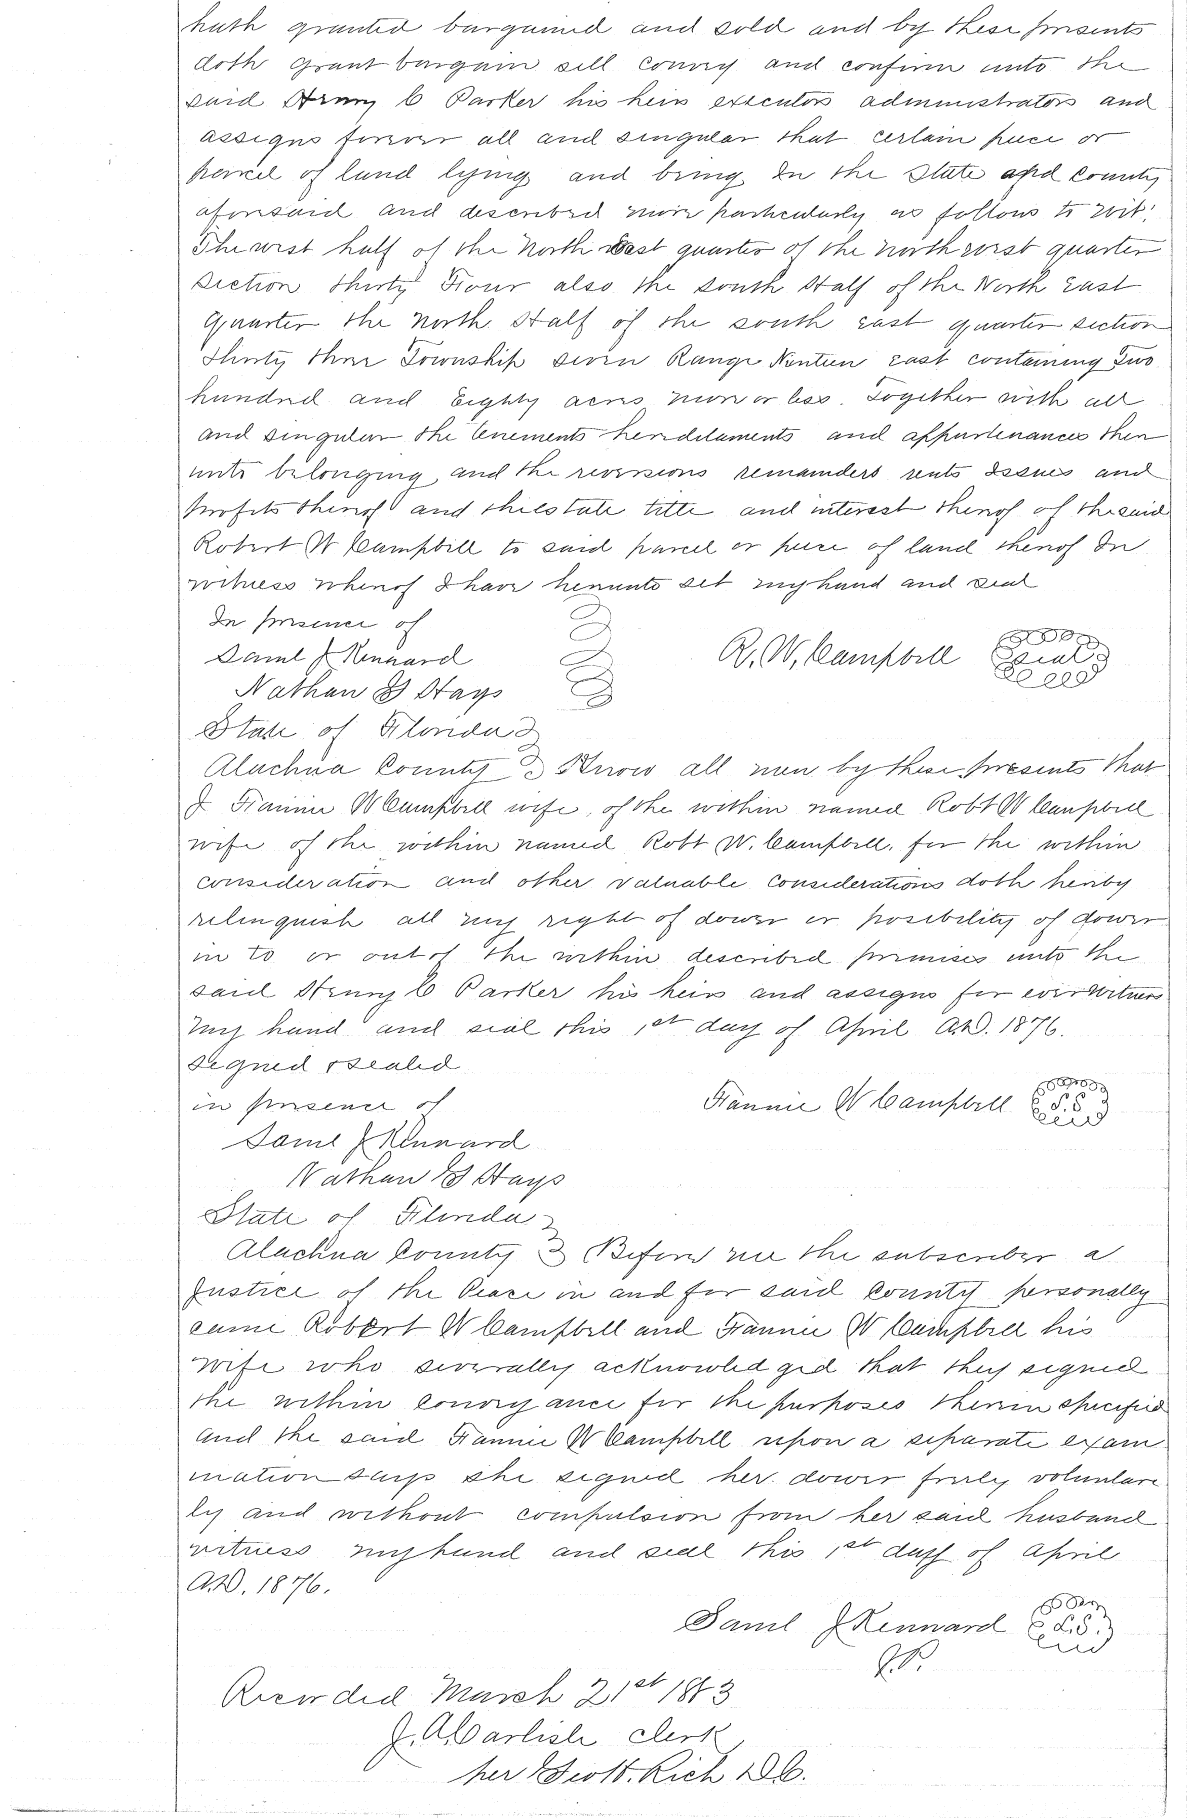 hath granted bargained and sold and by these presents
doth grant bargain sell convey and confirm unto the
said Henry C Parker his heirs executors administrators and
assigns forever all and singular that certain piece or
parcel of land lying and being In the State and County
aforesaid and described more particularly as follows to wit:
The west half of the North West quarter of the north west quarter
Section thirty Four also the South Half of the North East
Quarter the North Half of the south east quarter section
thirty three Township seven Range Ninteen east containing Two
hundred and Eighty acres more or less. Together with all
and singular the tenements hereditaments and appurtenances there
unto belonging and the reversions remainders rents Issues and
profits thereof and the estate title and interest thereof of the said
Robert W Campbell to said parcel or piece of land thereof In
witness whereof I have hereunto set my hand and seal
In presence of
Saml J Kennard
R. W. Campbell Seal
Nathan Hays
State of Florida
Alachua County Know all men by these presents that
I Fannie W Campbell wife of the within named Robt W Campbell
wife of the within named Robt W. Campbell. for the within
consideration and other valuable considerations doth hereby
relinquish all my right of dower or posibility of dower
in to or out of the within described premises unto the
said Henry C Parker his heirs and assigns for ever Witness
my hand and seal this 1st day of April A.D. 1876.
Signed & sealed
in presence of
Fannie W Campbell L.S.
Saml J Kennard
Nathan Hays
State of Florida
Alachua County Before me the subscriber a
Justice of the Peace in and for said County personally
came Robert W Campbell and Fannie W Campbell his
wife who severally acknowledged that they signed
the within conveyance for the purposes therein specified
and the said Fannie W Campbell upon a separate exam
ination says she signed her dower freely voluntare
ly and without compulsion from her said husband
witness my hand and seal this 1st day of April
A.D. 1876.
Saml J Kennard L.S.
J.P.
Recorded March 21st 1883
J. A. Carlisle Clerk
per Rich D.C.